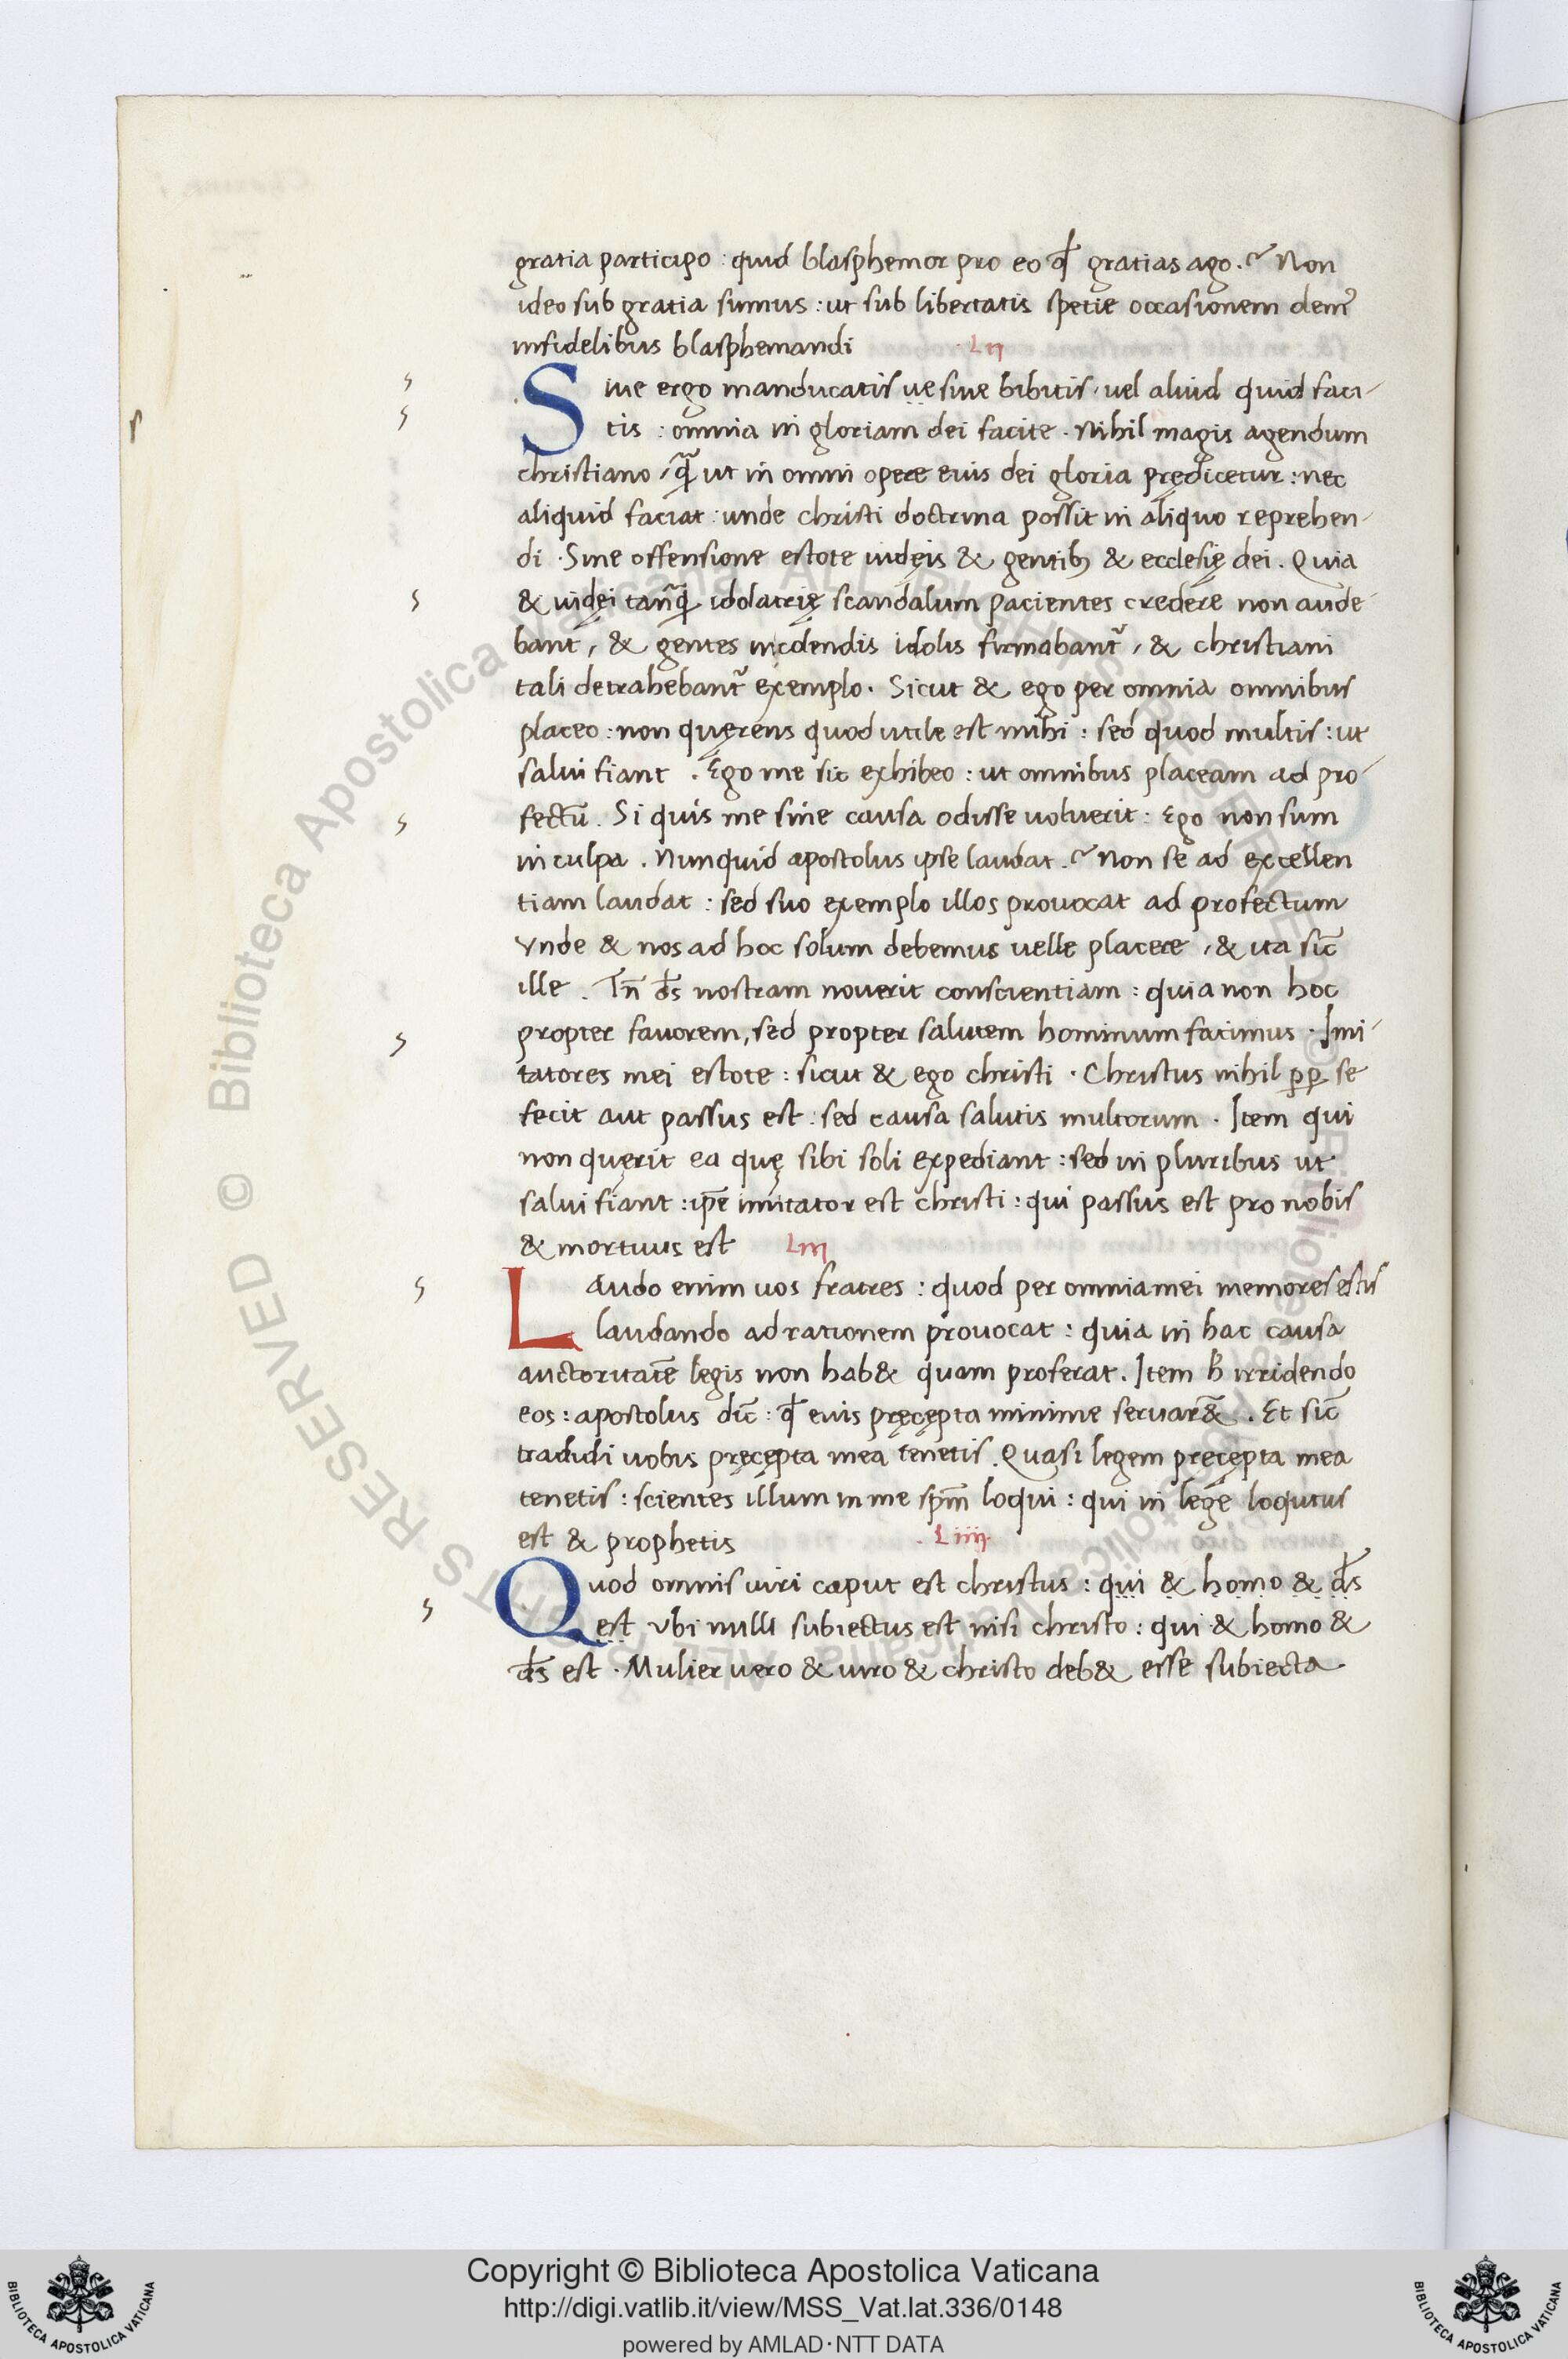 gratia participo : quid blasphemor pro eo qđ gratias ago . ? Non
ideo sub gratia sumus : ut sub libertatis spetie occasionem dem᷒
infidelibus blasphemandi
LII
Siue ergo manducatis ue siue bibitis , uel aliud quid faci-
tis : omnia in gloriam dei facite . Nihil magis agendum
christiano , q̃ ut in omni opere eius dei gloria prędicetur : nec
aliquid faciat : unde christi doctrina possit in aliquo reprehen-
di . Sine offensione estote iudęis & gentib; & ecclesię dei . Quia
& iudęi tanq̃ idolatrię scandalum pacientes credere non aude-
bant , & gentes incdendis idolis firmabant᷒ , & christiani
tali detrahebant᷒ exemplo . Sicut & ego per omnia omnibus
placeo : non quęrens quod utile est mihi : sed quod multis : ut
salui fiant . Ego me sic exhibeo : ut omnibus placeam ad pro-
fectū . Si quis me sine causa odisse uoluerit : Ego non sum
in culpa . Nunquid apostolus ipse laudat . ? Non se ad excellen
tiam laudat : sed suo exemplo illos prouocat ad profectum
Vnde & nos ad hoc solum debemus uelle placere , & ita sic̄
ille . Tn̄ ds̄ nostram nouerit conscientiam : quia non hoc
propter fauorem , sed propter salutem hominum facimus . Imi-
tatores mei estote : sicut & ego christi . Christus nihil ꝑꝑ se
fecit aut passus est : sed causa salutis multorum . Item qui
non quęrit ea quę sibi soli expediant : sed in pluribus ut
salui fiant : ip̄e imitator est christi : qui passus est pro nobis
& mortuus est
LIII
Laudo enim uos fratres : quod per omnia mei memores estis
laudando ad rationem prouocat : quia in hac causa
auctoritatē legis non hab& quam proferat . Item h̄ irridendo
eos : apostolus dic̄ : qđ eius pręcępta minime seruar&̄ . Et sic̄
tradidi uobis pręcępta mea tenetis . Quasi legem precępta mea
tenetis : scientes illum in me sp̄m loqui : qui in lege loqutus
est & prophetis
LIIII
Quod omnis uiri caput est christus : qui & homo & ds̄
est . Vbi nulli subiectus est nisi christo : qui & homo &
ds̄ est . Mulier uero & uiro & christo deb& esse subiecta .
© Biblioteca Apostolica Vaticana ALL RIGHTS RESERVED
Copyright © Biblioteca Apostolica Vaticana
http://digi.vatlib.it/view/MSS_Vat.lat.336/0148
powered by AMLAD·NTT DATA
BIBLIOTECA APOSTOLICA VATICANA
BIBLIOTECA APOSTOLICA VATICANA